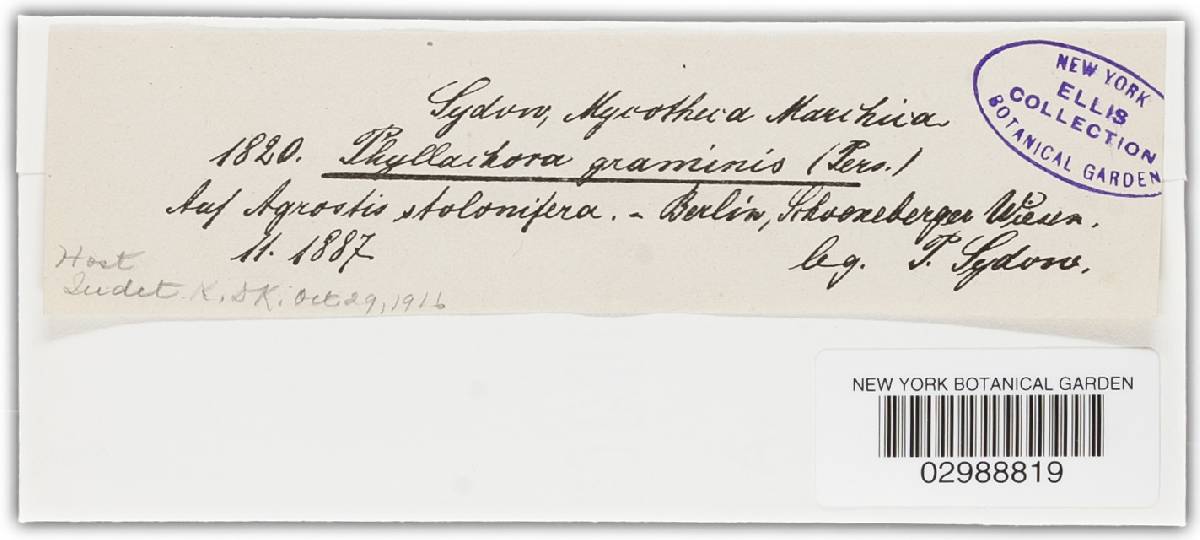 Sydow, Mycotheca Marchica
1820. Phyllachora graminis (Pers.)
Auf Agrostis stolonifera. - Berlin, Schoeneberger Wiesen.
11. 1887 leg. P. Sydow.
Host
Indet. K. Oct 29, 1916
NEW YORK
ELLIS
COLLECTION
BOTANICAL GARDEN
NEW YORK BOTANICAL GARDEN
02988819